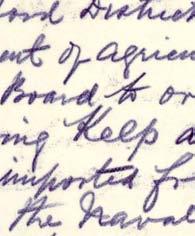 ord District
ent of agricu
Board to or
ing Kelp a
imported fr
the Naval